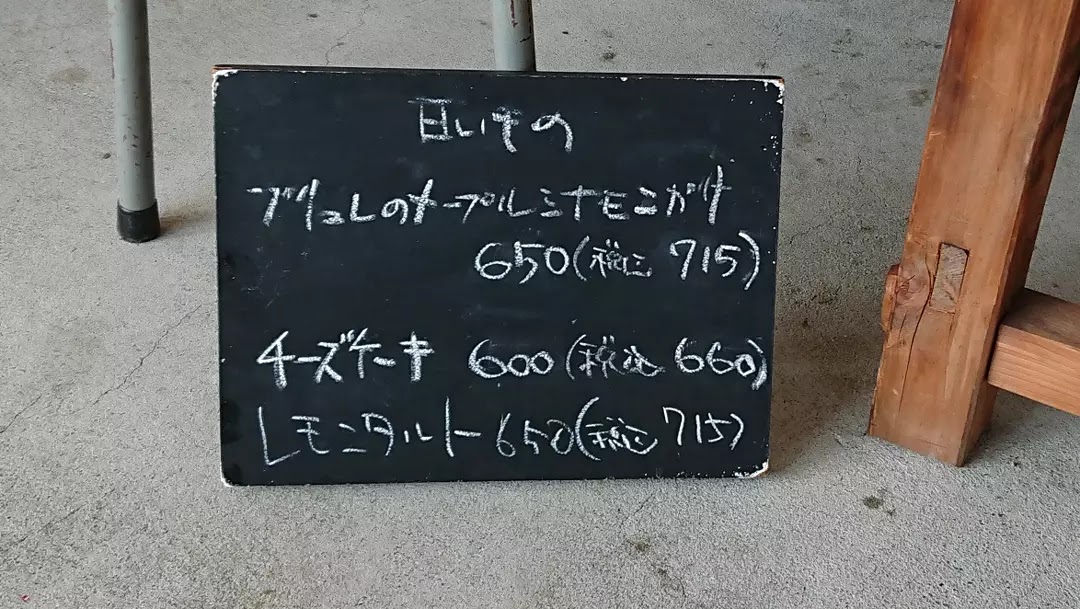 甘いもの
ブリュレのメープルシナモンがけ
650(税込 715)
チーズケーキ 600(税込 660)
レモンタルト 650(税込 715)